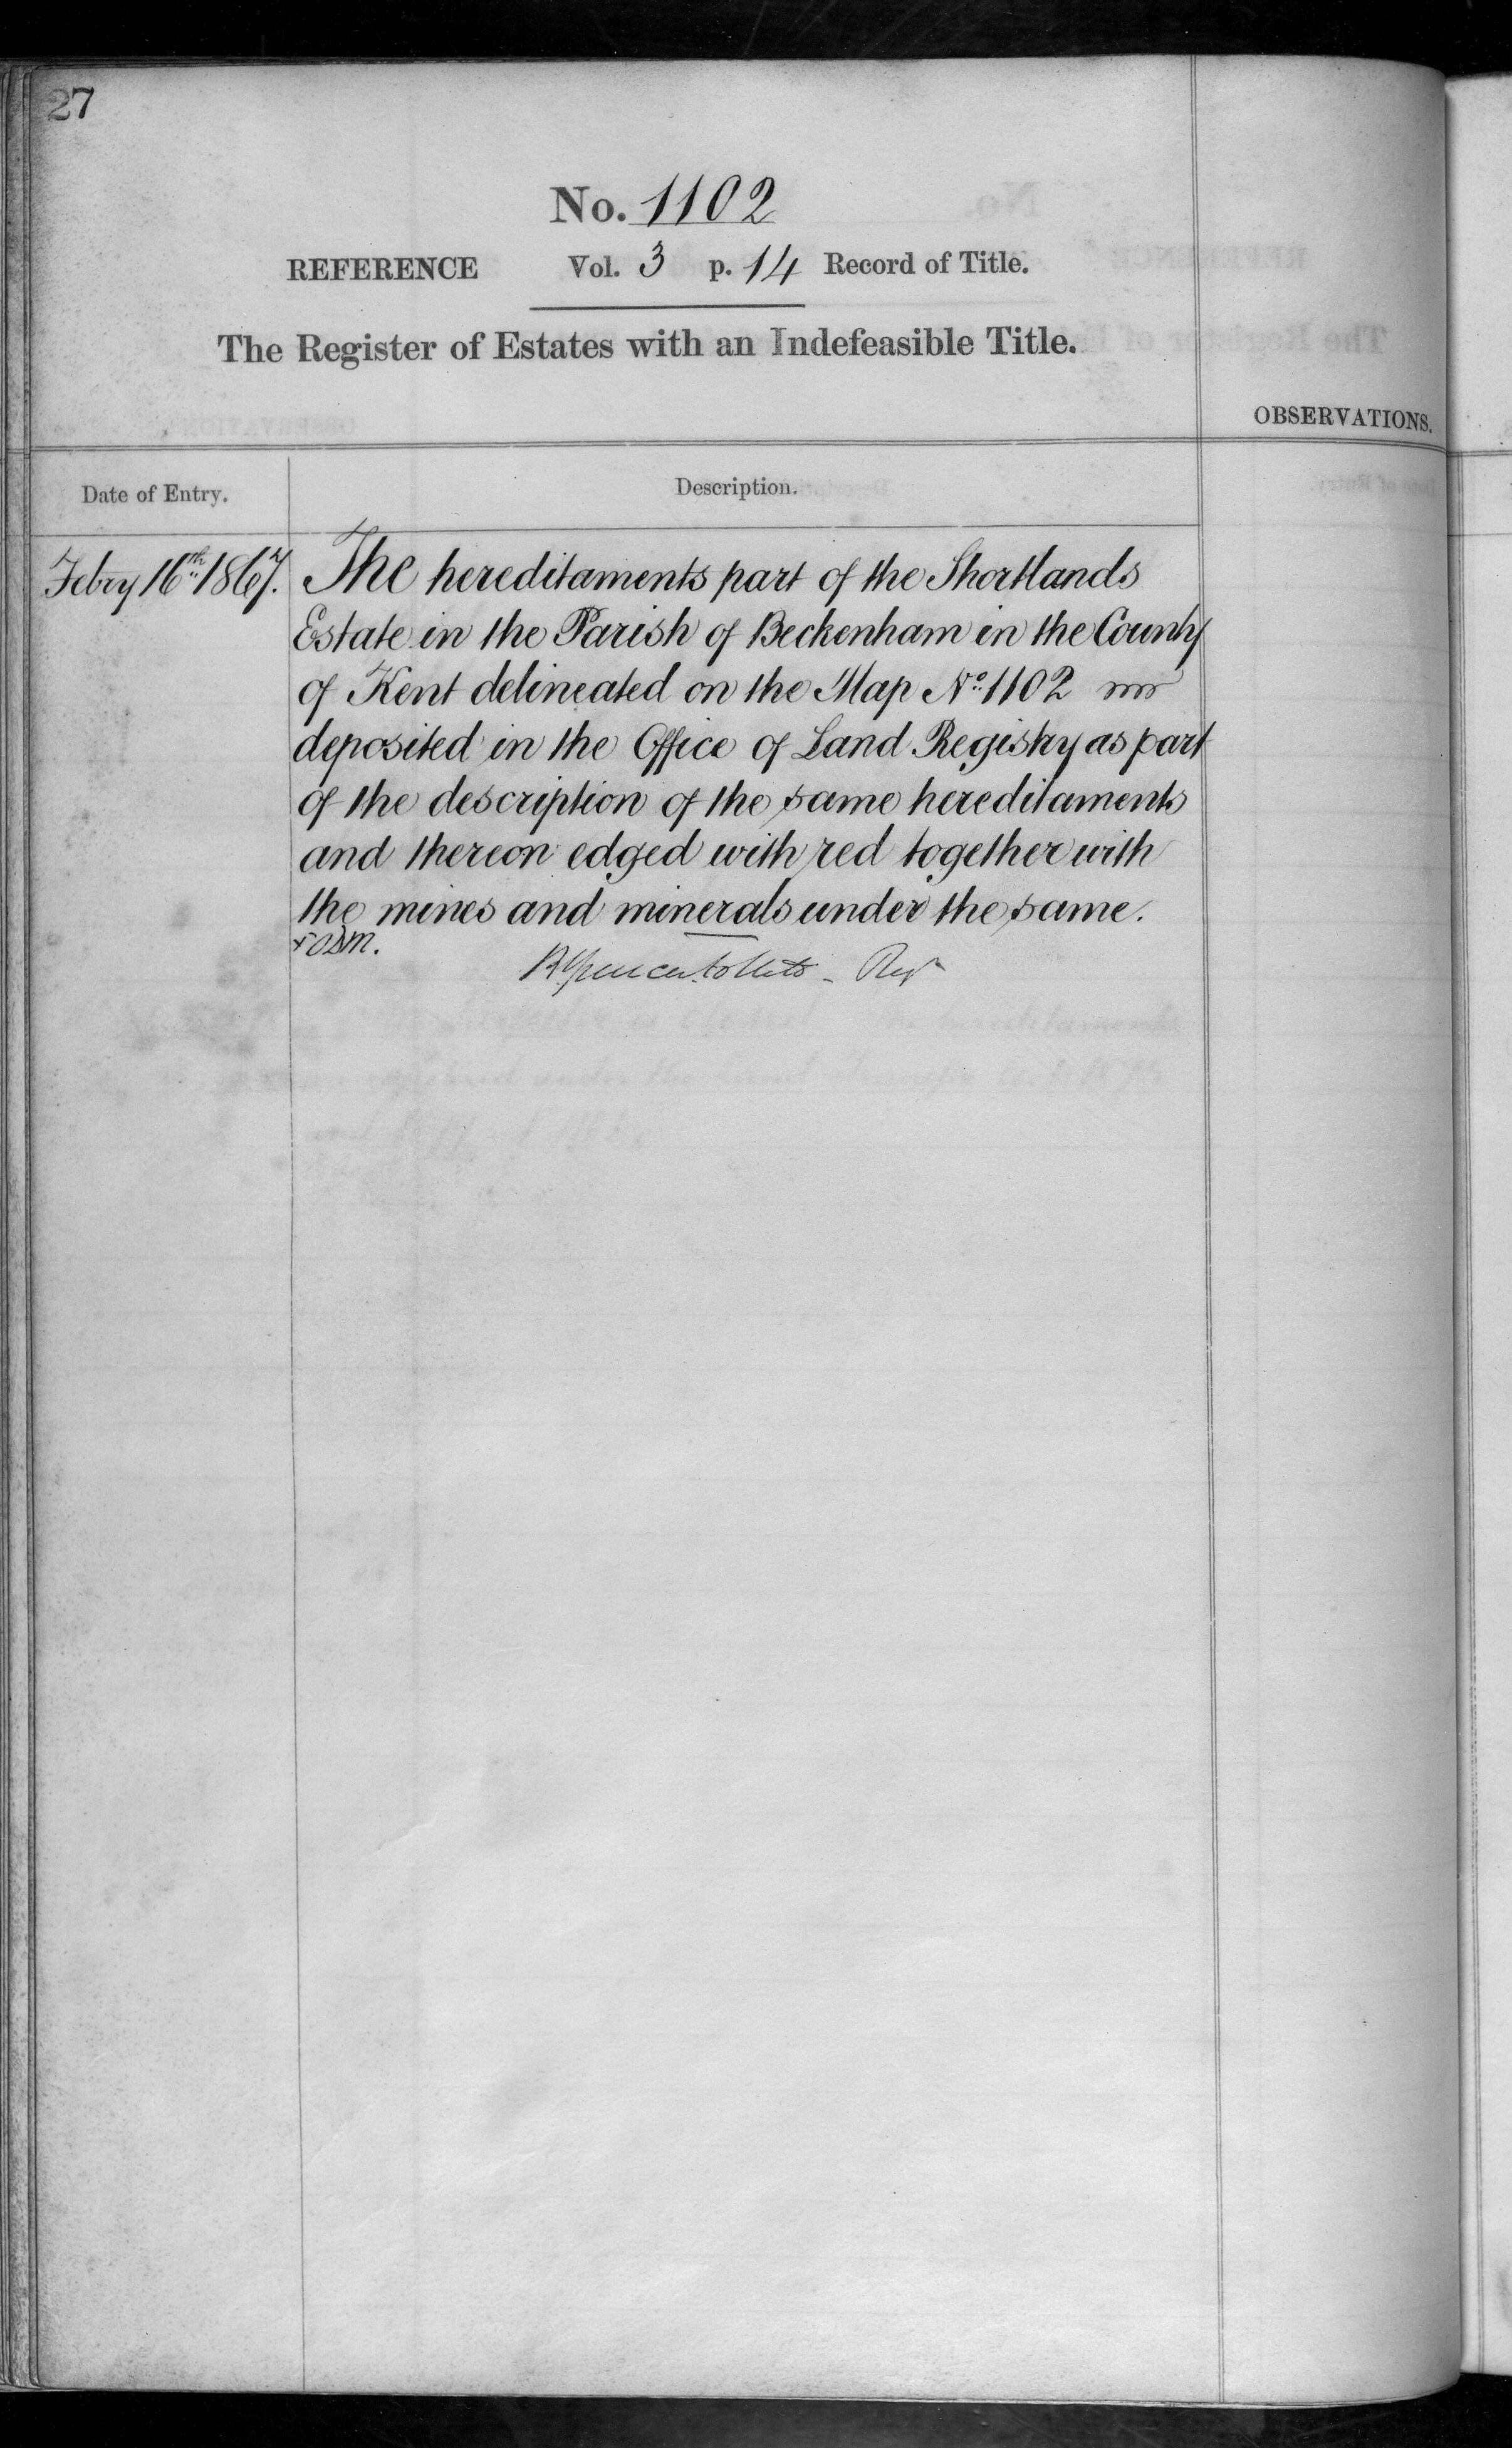 27
No. 1102
REFERENCE Vol. 3 p. 14 Record of Title.
The Register of Estates with an Indefeasible Title.
OBSERVATIONS.
Date of Entry.
Description.
Febry 16th 1867.
The hereditaments part of the Shortlands
Estate in the Parish of Beckenham in the County
of Kent delineated on the Map No. 1102
deposited in the Office of Land Registry as part
of the description of the same hereditaments
and thereon edged with red together with
the mines and minerals under the same.